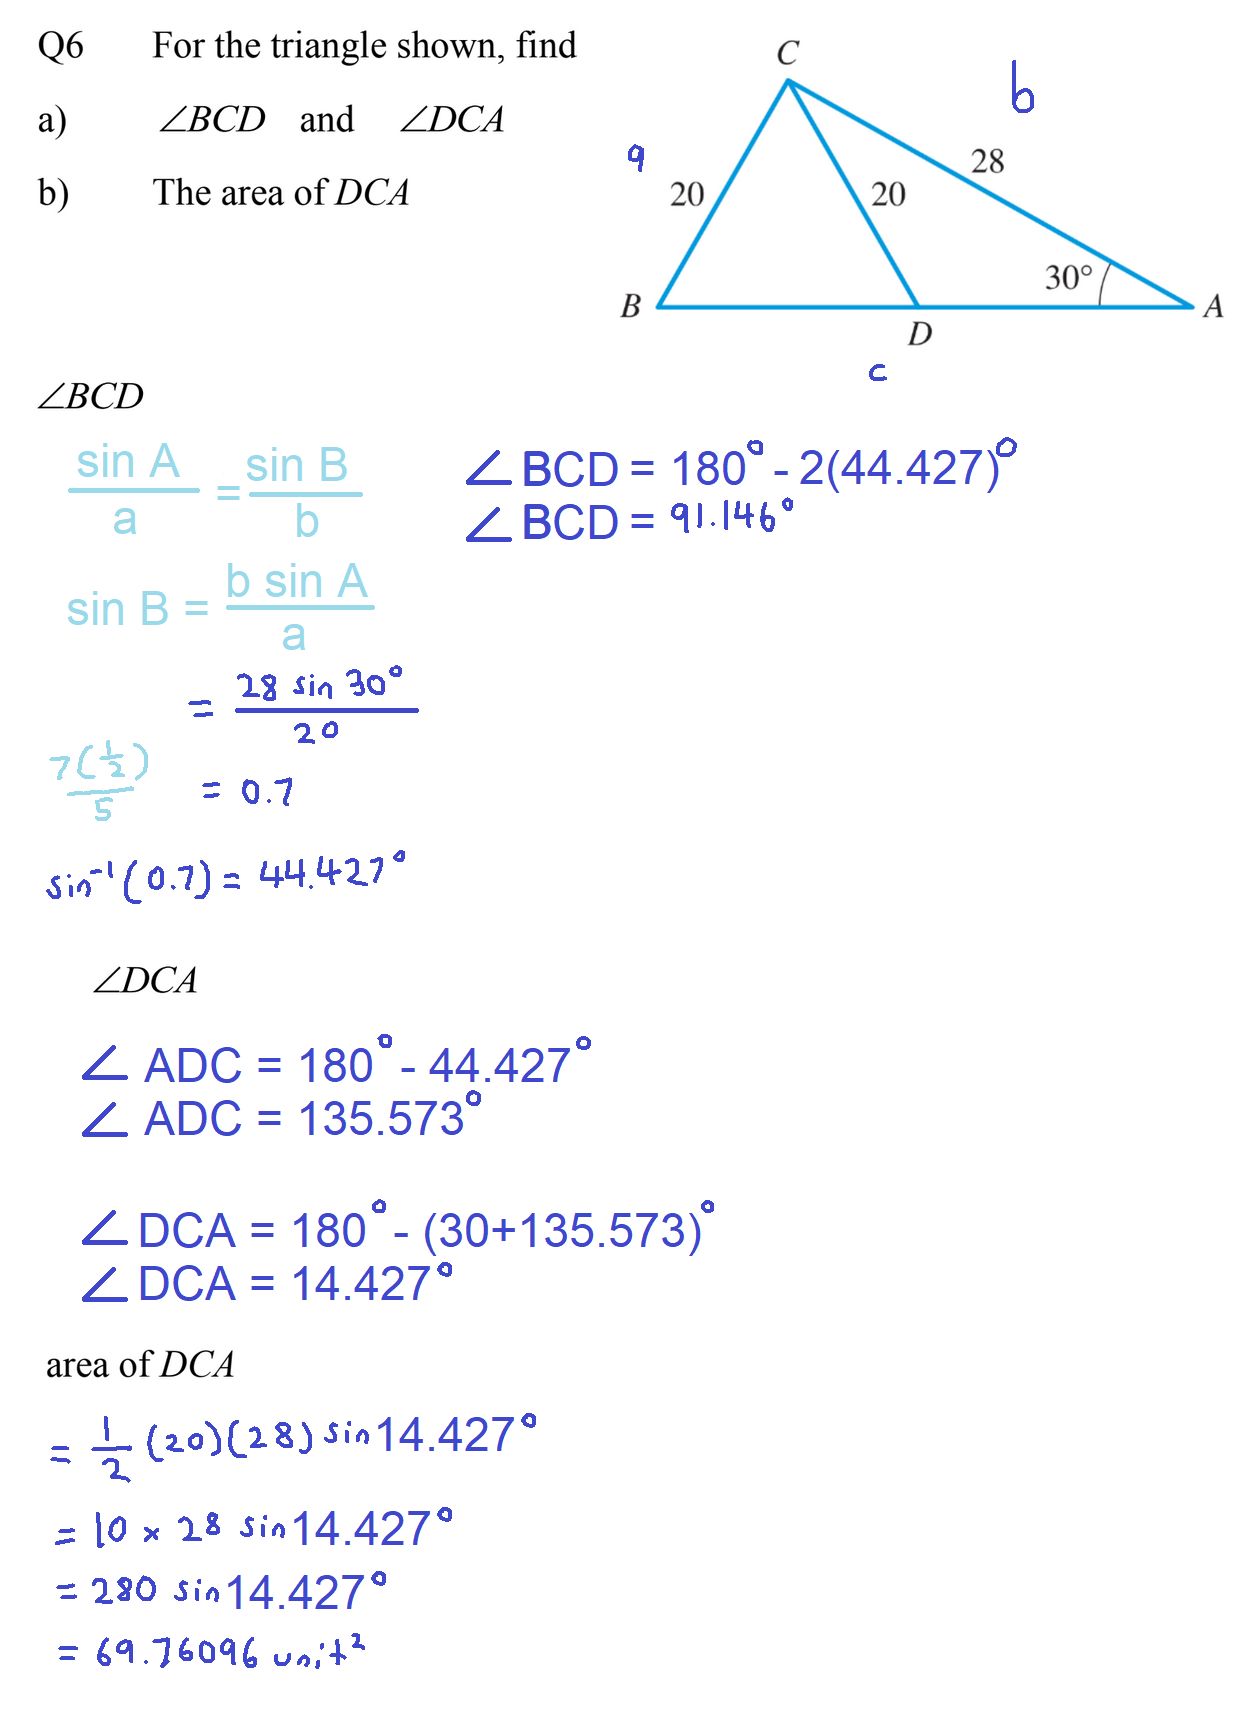 Q6 For the triangle shown, find
a) ∠BCD and ∠DCA
b) The area of DCA
C
b
a
28
20
20
30°
B
A
D
c
∠BCD
sin A / a = sin B / b
∠BCD = 180° - 2(44.427)°
∠BCD = 91.146°
sin B = b sin A / a
= 28 sin 30° / 20
7(1/2) / 5
= 0.7
sin⁻¹(0.7) = 44.427°
∠DCA
∠ADC = 180° - 44.427°
∠ADC = 135.573°
∠DCA = 180° - (30+135.573)°
∠DCA = 14.427°
area of DCA
= 1/2 (20)(28) sin 14.427°
= 10 × 28 sin 14.427°
= 280 sin 14.427°
= 69.76096 unit²